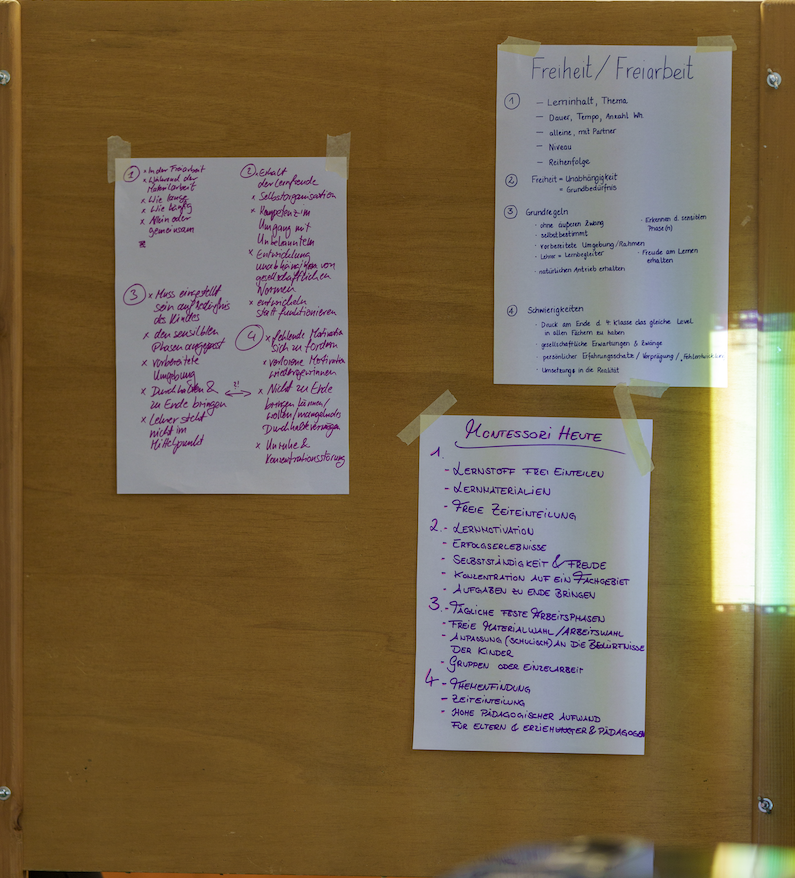 1 x In der Freiarbeit
x Während der
Materialarbeit
x Wie lange
x Wie häufig
x Allein oder
gemeinsam
2 x Erhalt
der Lernfreude
x Selbstorganisation
x Kompetenz im
Umgang mit
Unbekanntem
x Entwicklung
unabhängiger von
gesellschaftlichen
Normen
x entwickeln
statt funktionieren
3 x Muss eingestellt
sein auf Bedürfnis
des Kindes
x den sensiblen
Phasen angepasst
x vorbereitete
Umgebung
x Durchhalten &
zu Ende bringen
x Lehrer steht
nicht im
Mittelpunkt
?!
4 x fehlende Motivation
sich zu fordern
x verlorene Motivation
wiedergewinnen
x Nicht zu Ende
bringen können/
wollen/mangelndes
Durchhaltevermögen
x Unruhe &
Konzentrationsstörung
Freiheit / Freiarbeit
1 – Lerninhalt, Thema
– Dauer, Tempo, Anzahl Wh
– alleine, mit Partner
– Niveau
– Reihenfolge
2 Freiheit = Unabhängigkeit
= Grundbedürfnis
3 Grundregeln
· ohne äußeren Zwang
· selbstbestimmt
· vorbereitete Umgebung/Rahmen
· Lehrer = Lernbegleiter
· natürlichen Antrieb erhalten
· Erkennen d. sensiblen
Phase(n)
· Freude am Lernen
erhalten
4 Schwierigkeiten
· Druck am Ende d. 4. Klasse das gleiche Level
in allen Fächern zu haben
· gesellschaftliche Erwartungen & Zwänge
· persönlicher Erfahrungsschatz / Vorprägung /
· Umsetzung in die Realität
Montessori Heute
1.
- Lernstoff frei einteilen
- Lernmaterialien
- Freie Zeiteinteilung
2. - Lernmotivation
- Erfolgserlebnisse
- Selbstständigkeit & Freude
- Konzentration auf ein Fachgebiet
- Aufgaben zu Ende bringen
3. - Tägliche feste Arbeitsphasen
- Freie Materialwahl / Arbeitswahl
- Anpassung (schulisch) an die Bedürfnisse
der Kinder
- Gruppen oder Einzelarbeit
4 - Themenfindung
- Zeiteinteilung
- Hohe pädagogischer Aufwand
für Eltern & Erzieher & Pädagogen